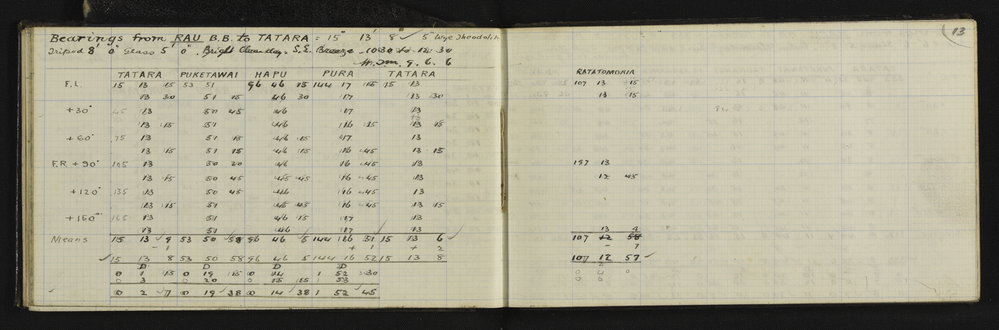 13
Bearings from RAU B.B. to TATARA = 15° 13' 8" ✓ 5" Wye Theodolite
Tripod 8' 0" Glass 5' 0". Bright Clear day. S.E. Breeze 10.30 to 12.30
9. 6. 6
TATARA PUKETAWAI HAPU PURA TATARA RATATOMOKIA
F.L. 15 13 15 53 51 96 46 15 144 17 15 15 13 107 13 15
13 30 51 15 46 30 17 13 30 13 15
+30° 45 13 50 45 46 17 13
13 15 51 46 16 45 13 15
+60° 75 13 51 15 46 15 17 13
13 15 51 15 46 15 16 45 13 15
F.R. +90° 105 13 50 20 46 16 45 13 197 13
13 15 50 45 45 45 16 45 12 45
+120° 135 13 50 45 46 16 45 13
13 15 51 45 45 16 45 13 15
+150° 165 13 51 46 15 17 13
13 51 46 17 13 13 9
Means 15 13 9 53 50 58 96 46 5 144 16 51 15 13 6 107 12 58
- 1 1 + 1 + 2 - 7
15 13 8 53 50 58 96 46 5 144 16 52 15 13 8 107 12 57
D D D D
0 1 15 0 19 15 0 14 1 52 30 0 0 0
0 3 0 20 0 15 15 1 53 0 0 0
0 2 7 0 19 38 0 14 38 1 52 45